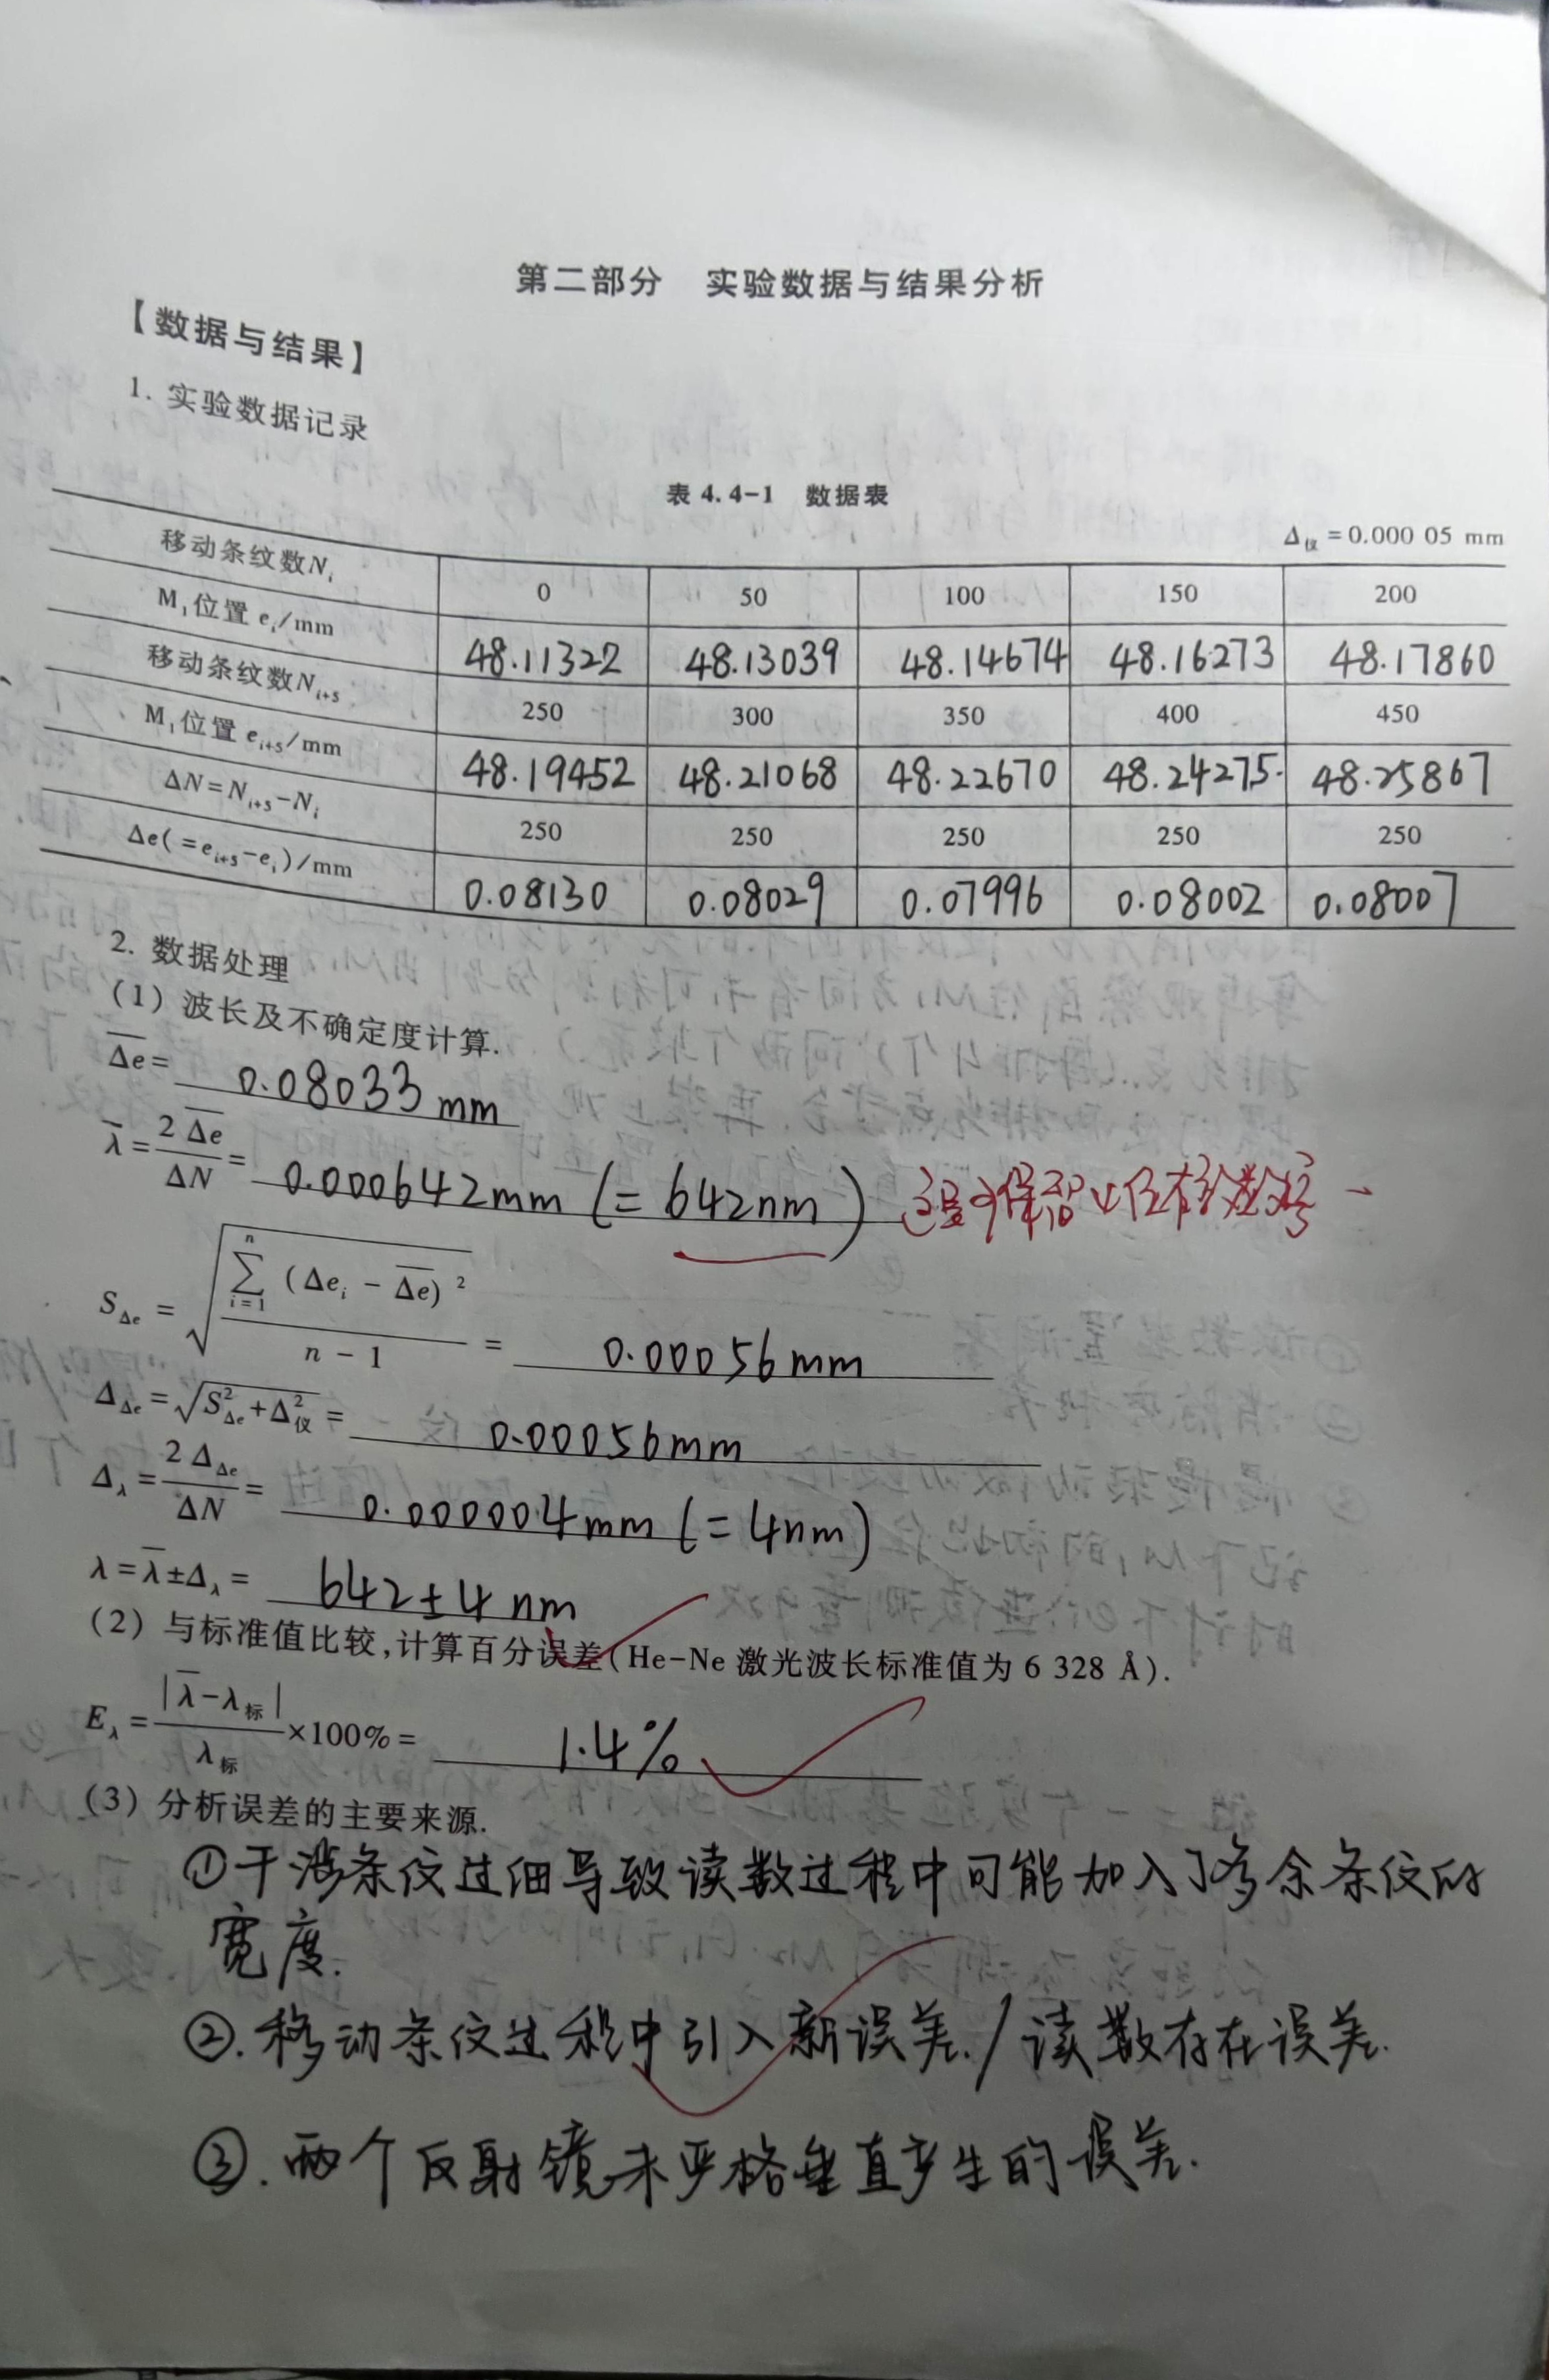 第二部分 实验数据与结果分析
【数据与结果】
1. 实验数据记录
表 4.4-1 数据表
Δ仪 = 0.000 05 mm
移动条纹数Nᵢ 0 50 100 150 200
M₁位置 eᵢ/mm 48.11322 48.13039 48.14674 48.16273 48.17860
移动条纹数Nᵢ₊₅ 250 300 350 400 450
M₁位置 eᵢ₊₅/mm 48.19452 48.21068 48.22670 48.24275 48.25867
ΔN=Nᵢ₊₅-Nᵢ 250 250 250 250 250
Δe(=eᵢ₊₅-eᵢ)/mm 0.08130 0.08029 0.07996 0.08002 0.08007
2. 数据处理
(1) 波长及不确定度计算.
Δe̅ = 0.08033 mm
λ̅ = 2Δe̅/ΔN = 0.000642mm (= 642nm) 保留4位有效数字
S_Δe = √(∑ⁿᵢ₌₁ (Δeᵢ - Δe̅)²/(n - 1)) = 0.00056mm
Δ_Δe = √(S²_Δe+Δ²仪) = 0.00056mm
Δ_λ = 2Δ_Δe/ΔN = 0.000004mm (= 4nm)
λ = λ̅±Δ_λ = 642±4 nm
(2) 与标准值比较,计算百分误差(He-Ne 激光波长标准值为 6 328 Å).
E_λ = |λ̅-λ标|/λ标 ×100% = 1.4%
(3) 分析误差的主要来源.
①干涉条纹过细导致读数过程中可能加入了多余条纹的
宽度.
②.移动条纹过程中引入新误差./读数存在误差.
③.两个反射镜未严格垂直产生的误差.